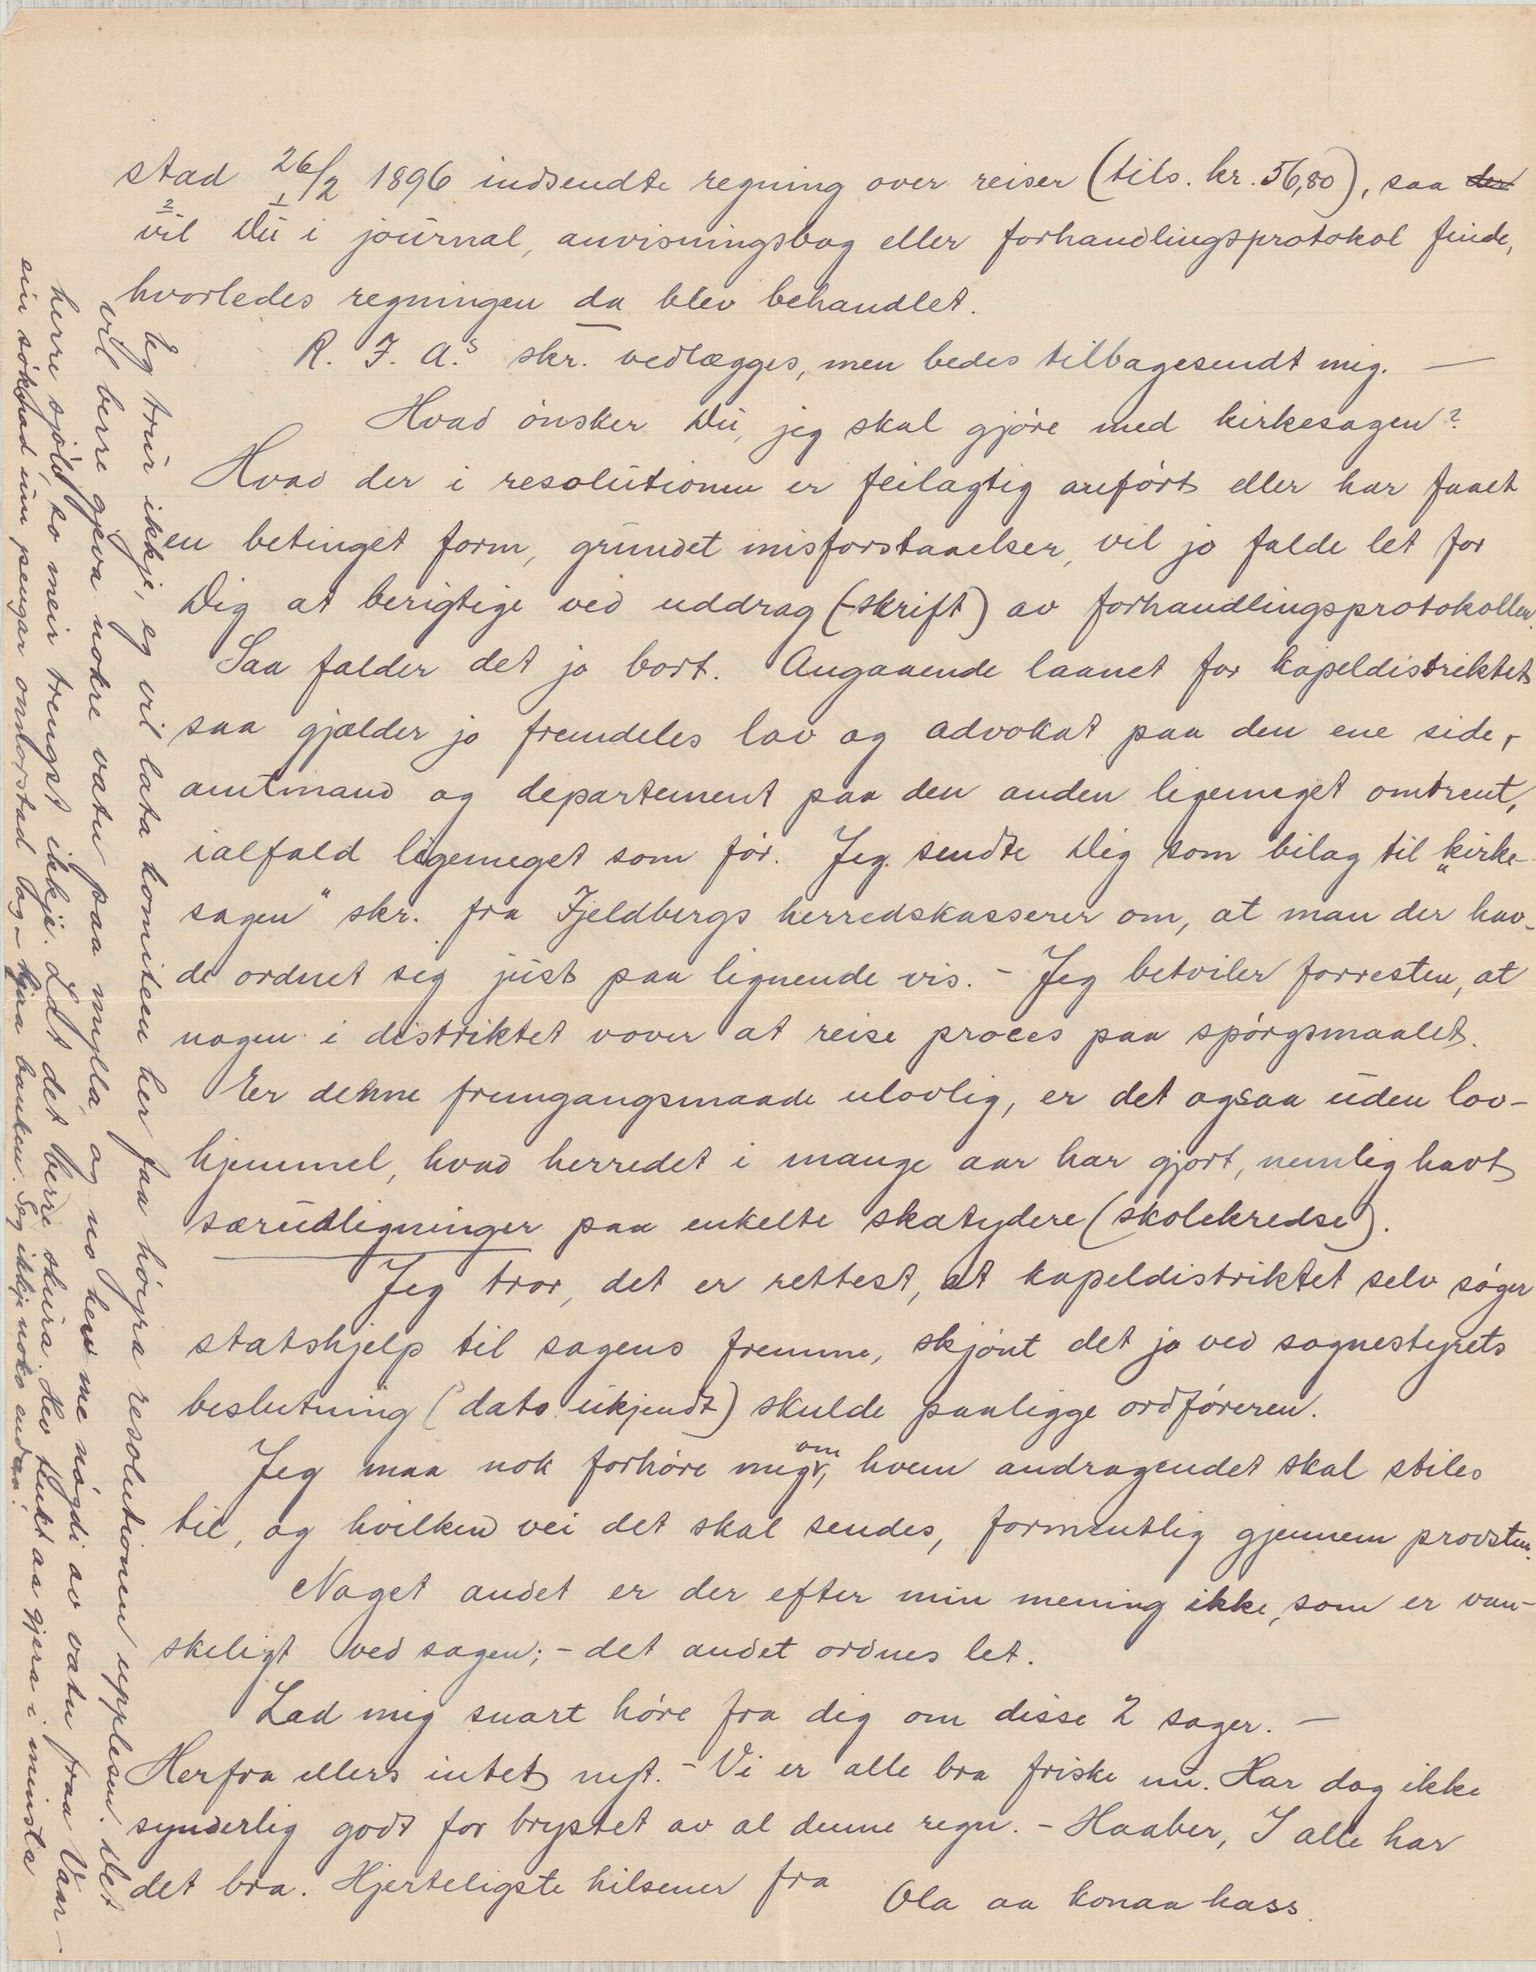 stad 26/2 1896 indsendte regning over reiser (tils. kr. 56,80), saa der
vil Du i journal, anvisningsbog eller forhandlingsprotokol finde,
hvorledes regningen da blev behandlet.
R. F. A.s skr. vedlægges, men bedes tilbagesendt mig. —
Hvad ønsker Du, jeg skal gjøre med kirkesagen?
Hvad der i resolutionen er feilagtig anført eller har faaet
en betinget form, grundet misforstaaelser, vil jo falde let for
Dig at berigtige ved uddrag (-skrift) av forhandlingsprotokollen.
Saa falder det jo bort. Angaaende laanet for kapeldistriktet
saa gjælder jo fremdeles lov og advokat paa den ene side,
amtmand og departement paa den anden ligemeget omtrent,
ialfald ligemeget som før. Jeg sendte Dig som bilag til „kirke-
sagen" skr. fra Fjeldbergs herredskasserer om, at man der hav-
de ordnet sig just paa lignende vis. - Jeg betviler forresten, at
nogen i distriktet vover at reise proces paa spørgsmaalet.
Er denne fremgangsmaade ulovlig, er det ogsaa uden lov-
hjemmel, hvad herredet i mange aar har gjort, nemlig havt
særudligninger paa enkelte skatydere (skolekredse).
Jeg tror, det er rettest, at kapeldistriktet selv søger
statshjelp til sagens fremme, skjønt det jo ved sognestyrets
beslutning (dato ukjendt) skulde paaligge ordføreren.
Jeg maa nok forhøre mig om, hvem andragendet skal stiles
til, og hvilken vei det skal sendes, formentlig gjennem provsten.
Noget andet er der efter min mening ikke, som er van-
skeligt ved sagen; - det andet ordnes let.
Lad mig snart høre fra dig om disse 2 sager. —
Herfra ellers intet nyt. - Vi er alle bra friske nu. Har dog ikke
synderlig godt for brystet av al denne regn. - Haaber, I alle har
det bra. Hjerteligste hilsener fra
Ola aa konaa hass.
Eg trur ikkje, eg vil lata komiteen her faa høyra resolutionen upplesen. Det
vil berre gjeva nokre vatn paa mylla, og no hev me nøgdi av vatn fraa Vaar-
herre sjølv, so meir trengst ikkje. Lat det berre skura. Hev tenkt aa gjera i minsta
ein søknad um pengar onnorstad og - hjaa banken. Seg ikkje noko endaa!